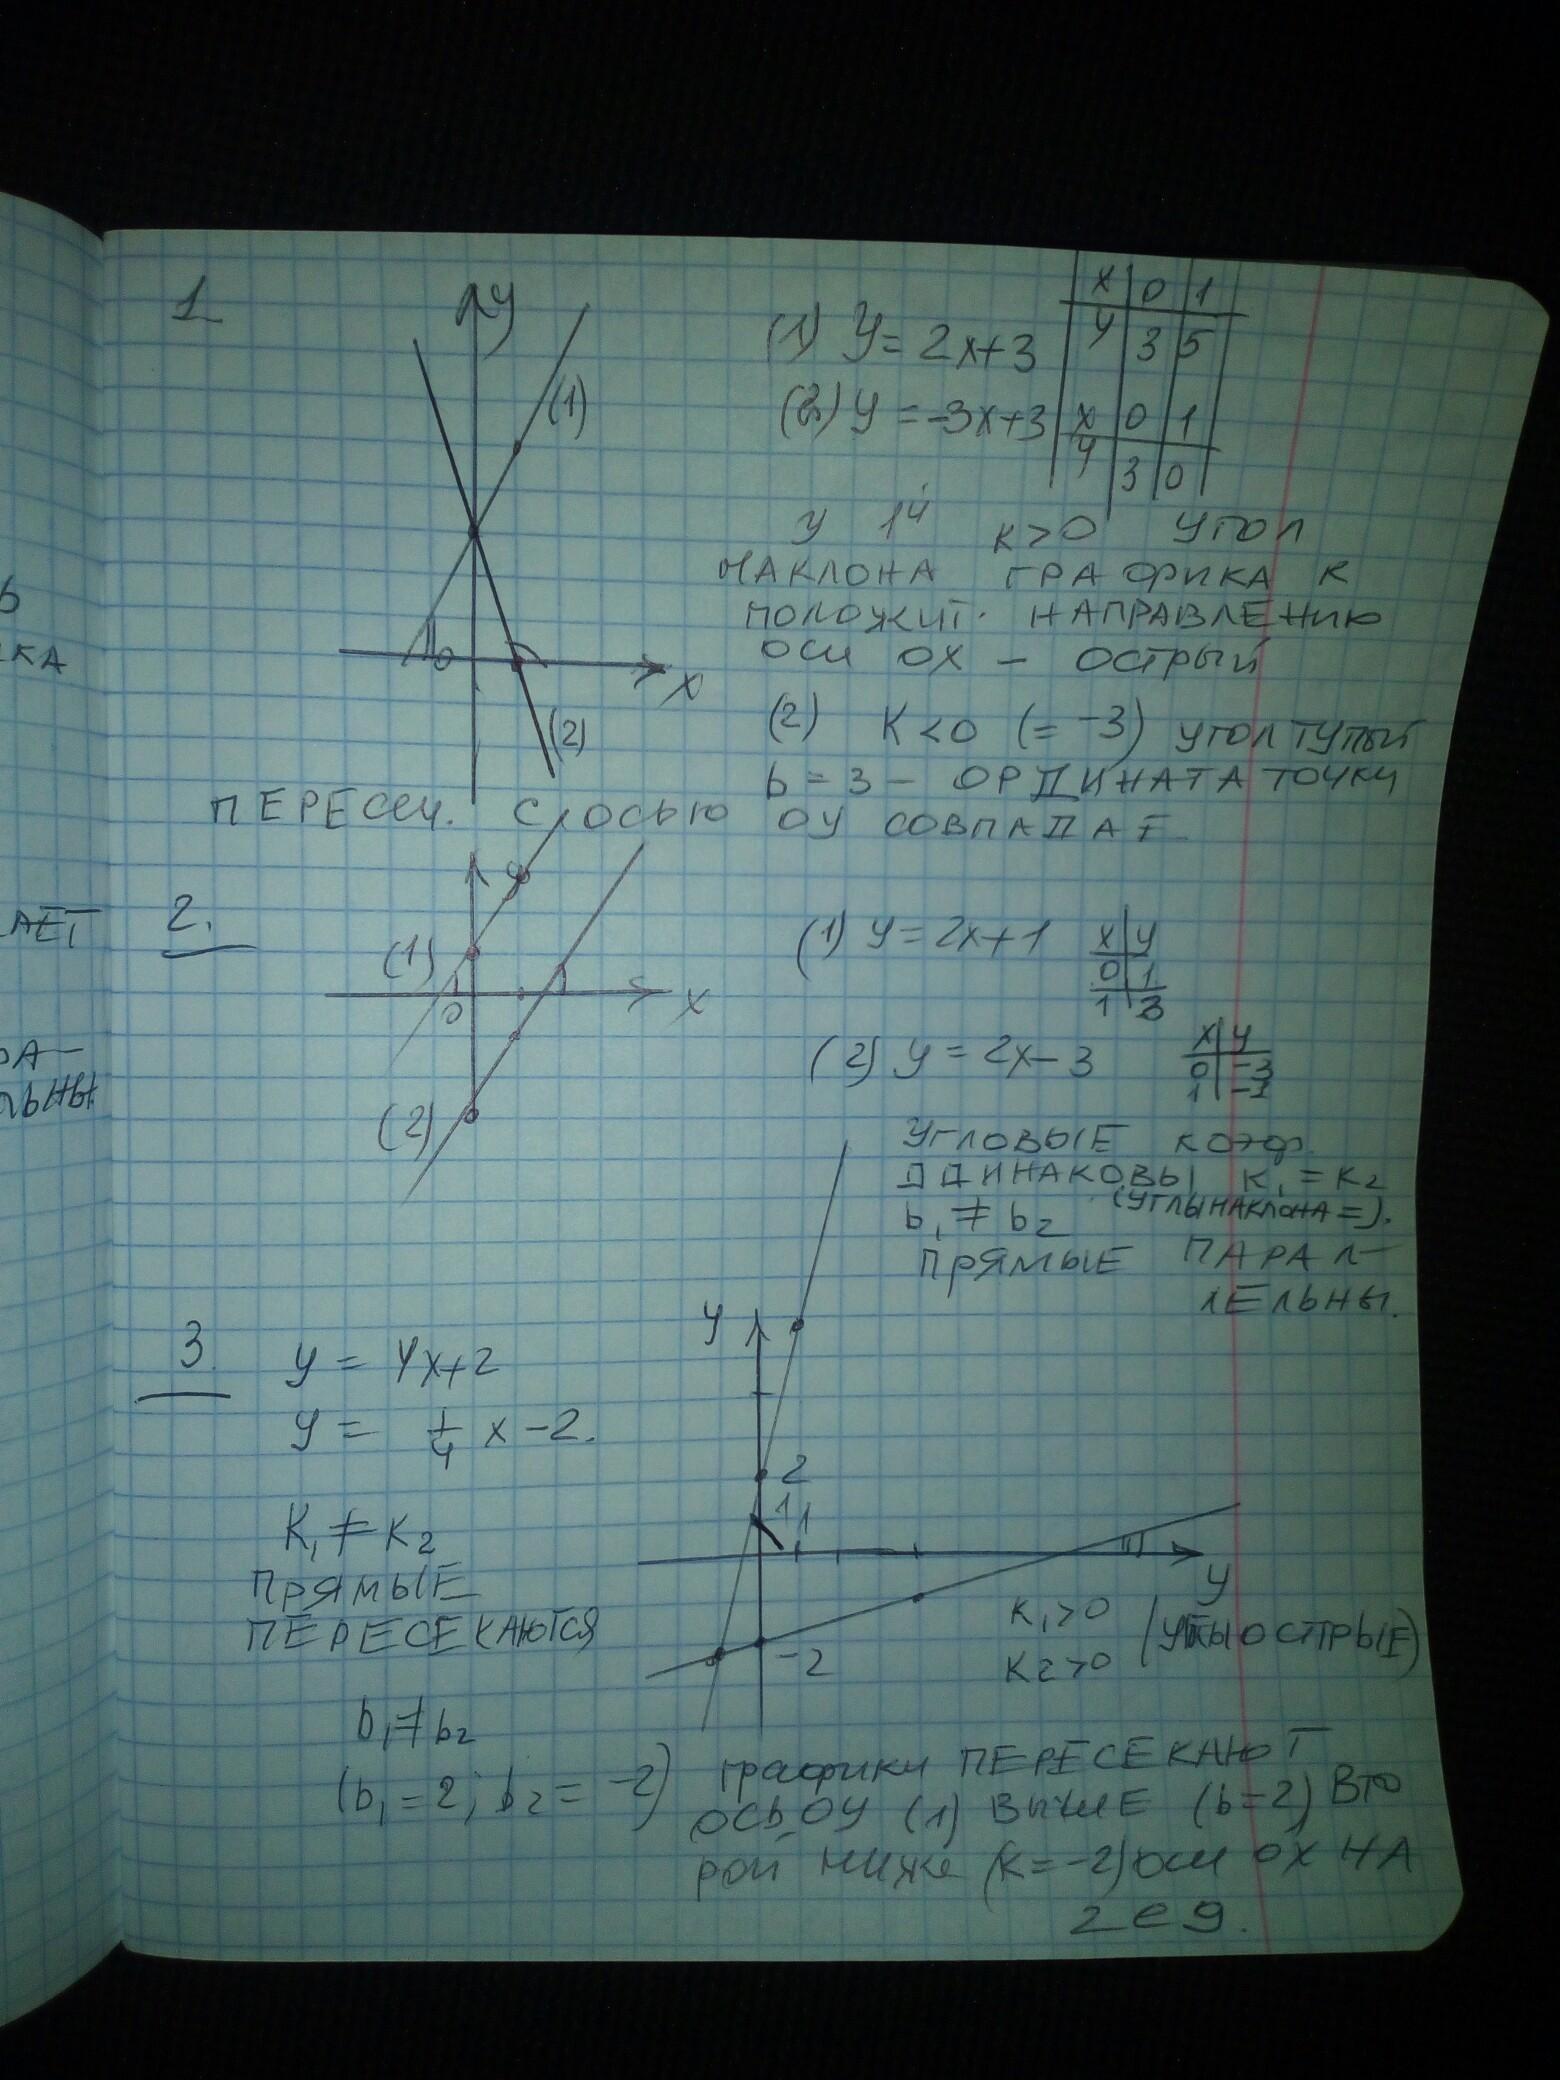 Ь
КА
АЕТ
РА-
ЛЬНЫ
1
y
(1)
0
x
(2)
(1) y = 2x+3
x 0 1
y 3 5
(2) y = -3x+3
x 0 1
y 3 0
У 1й K>0 УГОЛ
НАКЛОНА ГРАФИКА К
ПОЛОЖИТ. НАПРАВЛЕНИЮ
ОСИ ОХ - ОСТРЫЙ
(2) K<0 (= -3) УГОЛ ТУПЫЙ
b = 3 - ОРДИНАТА ТОЧКИ
ПЕРЕСЕЧ. С ОСЬЮ ОУ СОВПАДАЕТ
2.
(1)
0
x
(2)
(1) y = 2x+1
x y
0 1
1 3
(2) y = 2x-3
x y
0 -3
1 -1
УГЛОВЫЕ КОЭФ.
ОДИНАКОВЫ K₁ = K₂
b₁ ≠ b₂ (УГЛЫ НАКЛОНА =).
ПРЯМЫЕ ПАРАЛ-
ЛЕЛЬНЫ.
3.
y = 4x+2
y = 1/4 x -2.
K₁ ≠ K₂
ПРЯМЫЕ
ПЕРЕСЕКАЮТСЯ
b₁ ≠ b₂
(b₁ = 2; b₂ = -2)
y
2
1 1
y
-2
K₁>0
K₂>0 (УГЛЫ ОСТРЫЕ)
ГРАФИКИ ПЕРЕСЕКАЮТ
ОСЬ ОУ (1) ВЫШЕ (b=2) ВТО
РОЙ НИЖЕ (K=-2) ОСИ ОХ НА
2 ед.